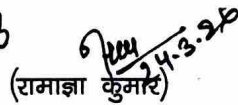 24.3.26
(रामाज्ञा कुमार)